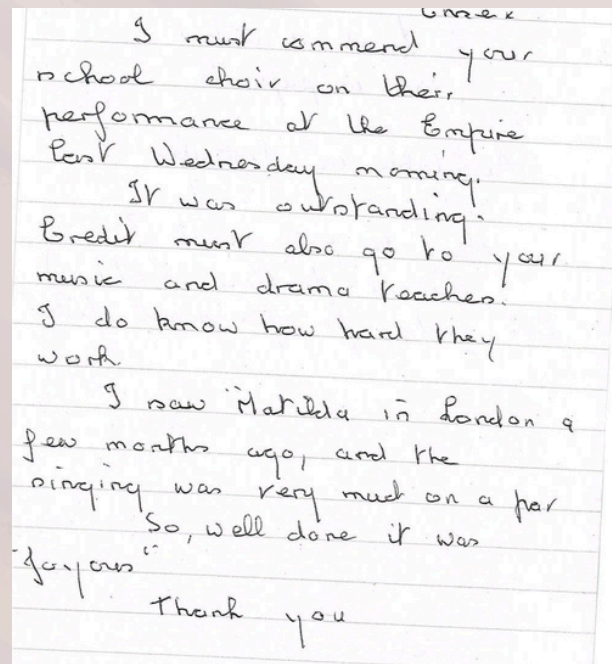 I must commend your
school choir on their
performance at the Empire
last Wednesday morning.
It was outstanding.
Credit must also go to your
music and drama teacher.
I do know how hard they
work.
I saw "Matilda in London a
few months ago, and the
singing was very much on a par
So, well done it was
"Joyous"
Thank you